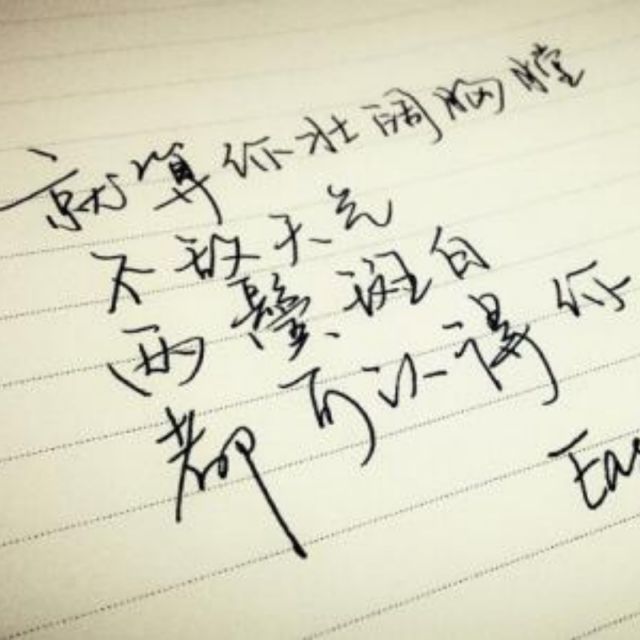 就算你壮阔胸膛
不敌天气
两鬓斑白
都可认得你
Eas